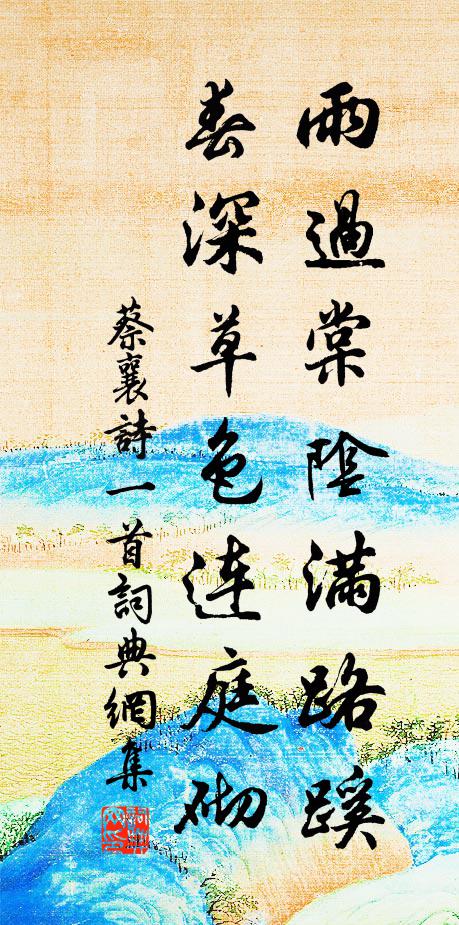 雨過棠陰滿路蹊
春深草色連庭砌
蔡襄詩一首詞典網集